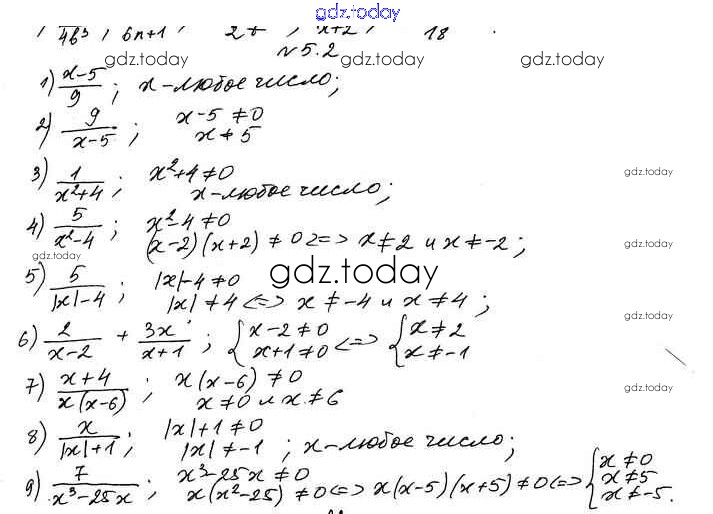 gdz.today
4b³ ; 6n+1 ; 2t ; x+2 ; 18 .
№5.2
gdz.today gdz.today gdz.today
1) (x-5)/9 ; x - любое число;
2) 9/(x-5) ; x-5 ≠ 0
x ≠ 5
3) 1/(x²+4) ; x²+4 ≠ 0
x - любое число;
gdz.today
4) 5/(x²-4) ; x²-4 ≠ 0
(x-2)(x+2) ≠ 0 <=> x ≠ 2 и x ≠ -2;
gdz.today
gdz.today
5) 5/(|x|-4) ; |x|-4 ≠ 0
gdz.today
|x| ≠ 4 <=> x ≠ -4 и x ≠ 4;
gdz.today
6) 2/(x-2) + 3x/(x+1) ; { x-2 ≠ 0 <=> { x ≠ 2
x+1 ≠ 0 x ≠ -1
7) (x+4)/(x(x-6)) ; x(x-6) ≠ 0
x ≠ 0 и x ≠ 6
gdz.today
8) x/(|x|+1) ; |x|+1 ≠ 0
|x| ≠ -1 ; x - любое число;
9) 7/(x³-25x) ; x³-25x ≠ 0
x(x²-25) ≠ 0 <=> x(x-5)(x+5) ≠ 0 <=> { x ≠ 0
x ≠ 5
x ≠ -5.